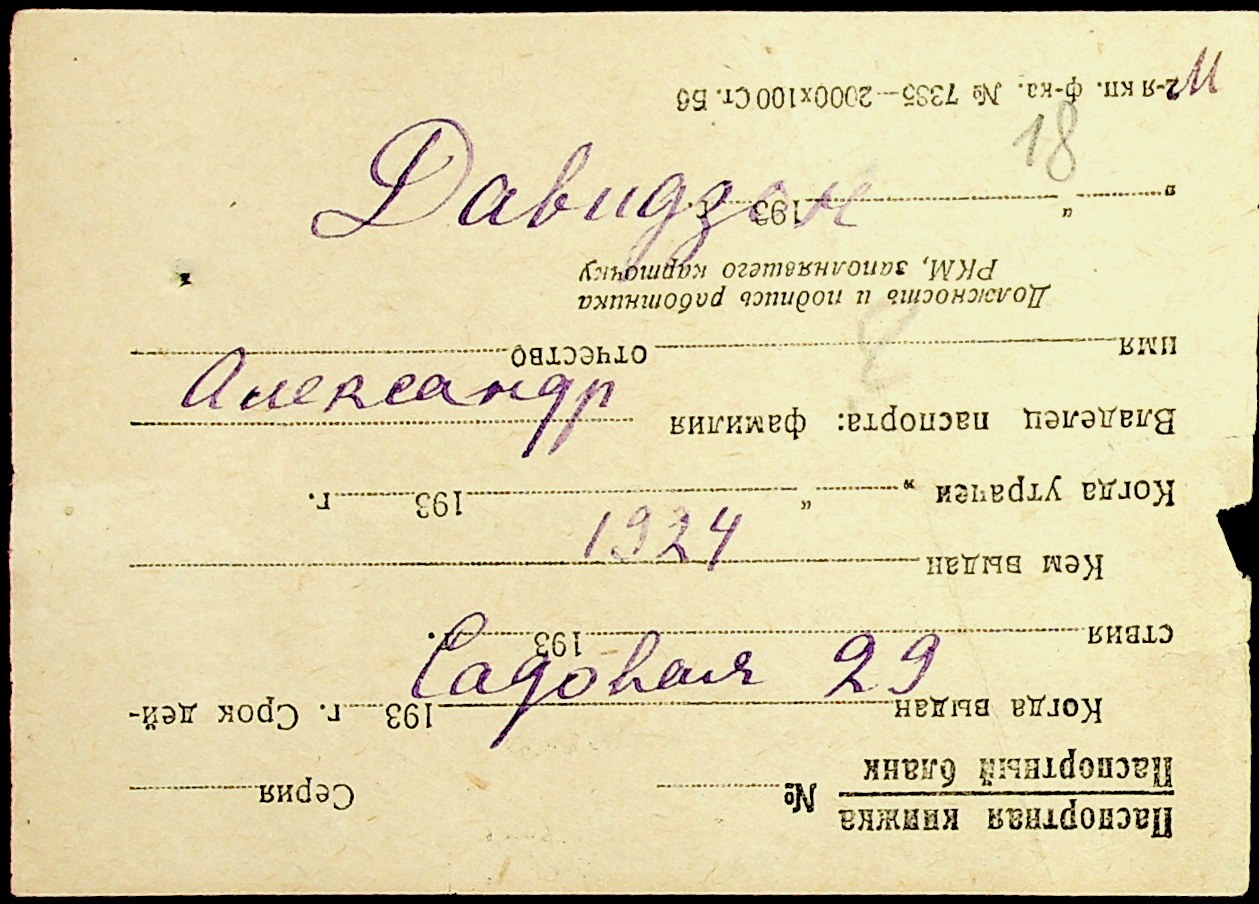 М
18
Давидзон
Александр
1924
Садовая 29
Паспортная книжка
Паспортный бланк № Серия
Когда выдан 193 г. Срок дей-
ствия 193 г.
Кем выдан
Когда утрачен „ “ 193 г.
Владелец паспорта: фамилия
имя отчество
Должность и подпись работника
РКМ, заполнявшего карточку
„ “ 193 г.
2-я кп. ф-ка. № 7335—2000х100 Ст. Б6